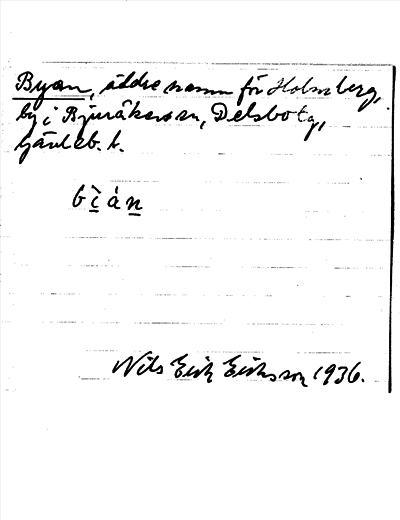 Byan, äldre namn för Holmberg,
by i Bjuråkers sn, Delsbo tg,
Gävleb. l.
bì̲ án̲
Nils Erik Eriksson 1936.